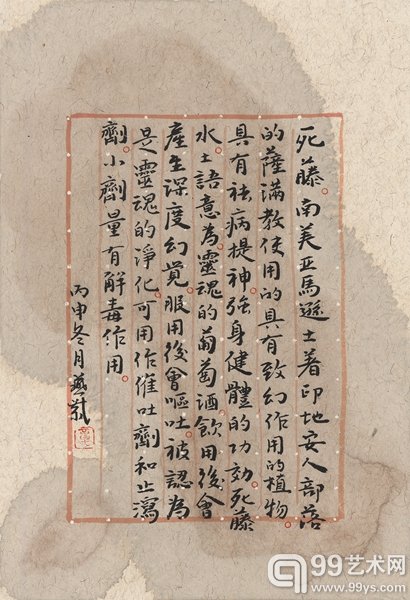 死藤。南美亚馬遜土著印地安人部落
的薩滿教使用的具有致幻作用的植物。
具有祛病提神強身健體的功効。死藤
水土語意為靈魂的葡萄酒。飲用後會
產生深度幻覺。服用後會嘔吐被認為
是靈魂的净化。可用作催吐劑和止瀉
劑。小劑量有解毒作用。
丙申冬月燕
99艺术网
www.99ys.com